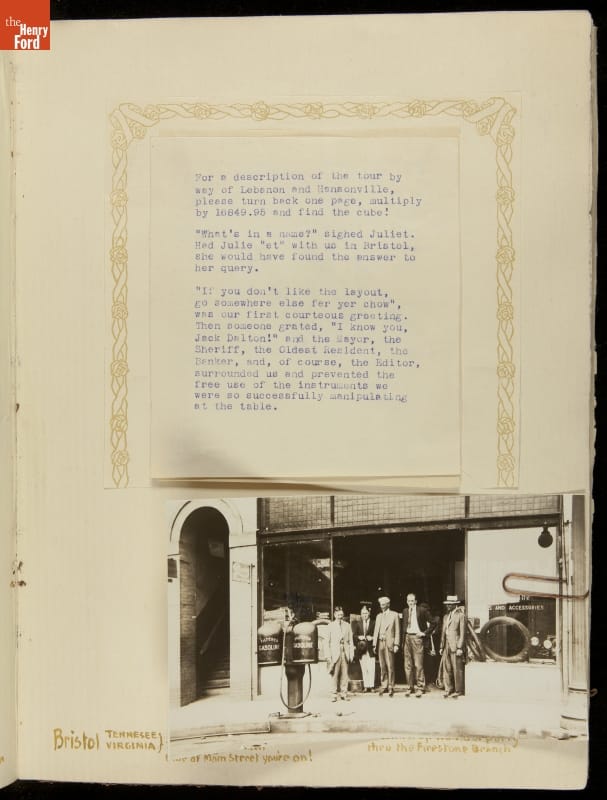 the
Henry
Ford
For a description of the tour by
way of Lebanon and Hansonville,
please turn back one page, multiply
by 16849.95 and find the cube!
"What's in a name?" sighed Juliet.
Had Julie "et" with us in Bristol,
she would have found the answer to
her query.
"If you don't like the layout,
go somewhere else fer yer chow",
was our first courteous greeting.
Then someone grated, "I know you,
Jack Dalton!" and the Mayor, the
Sheriff, the Oldest Resident, the
Banker, and, of course, the Editor,
surrounded us and prevented the
free use of the instruments we
were so successfully manipulating
at the table.
GASOLINE
GASOLINE
AND ACCESSORIES
Bristol TENNESEE
VIRGINIA
of Main Street you're on!
thru the Firestone Branch